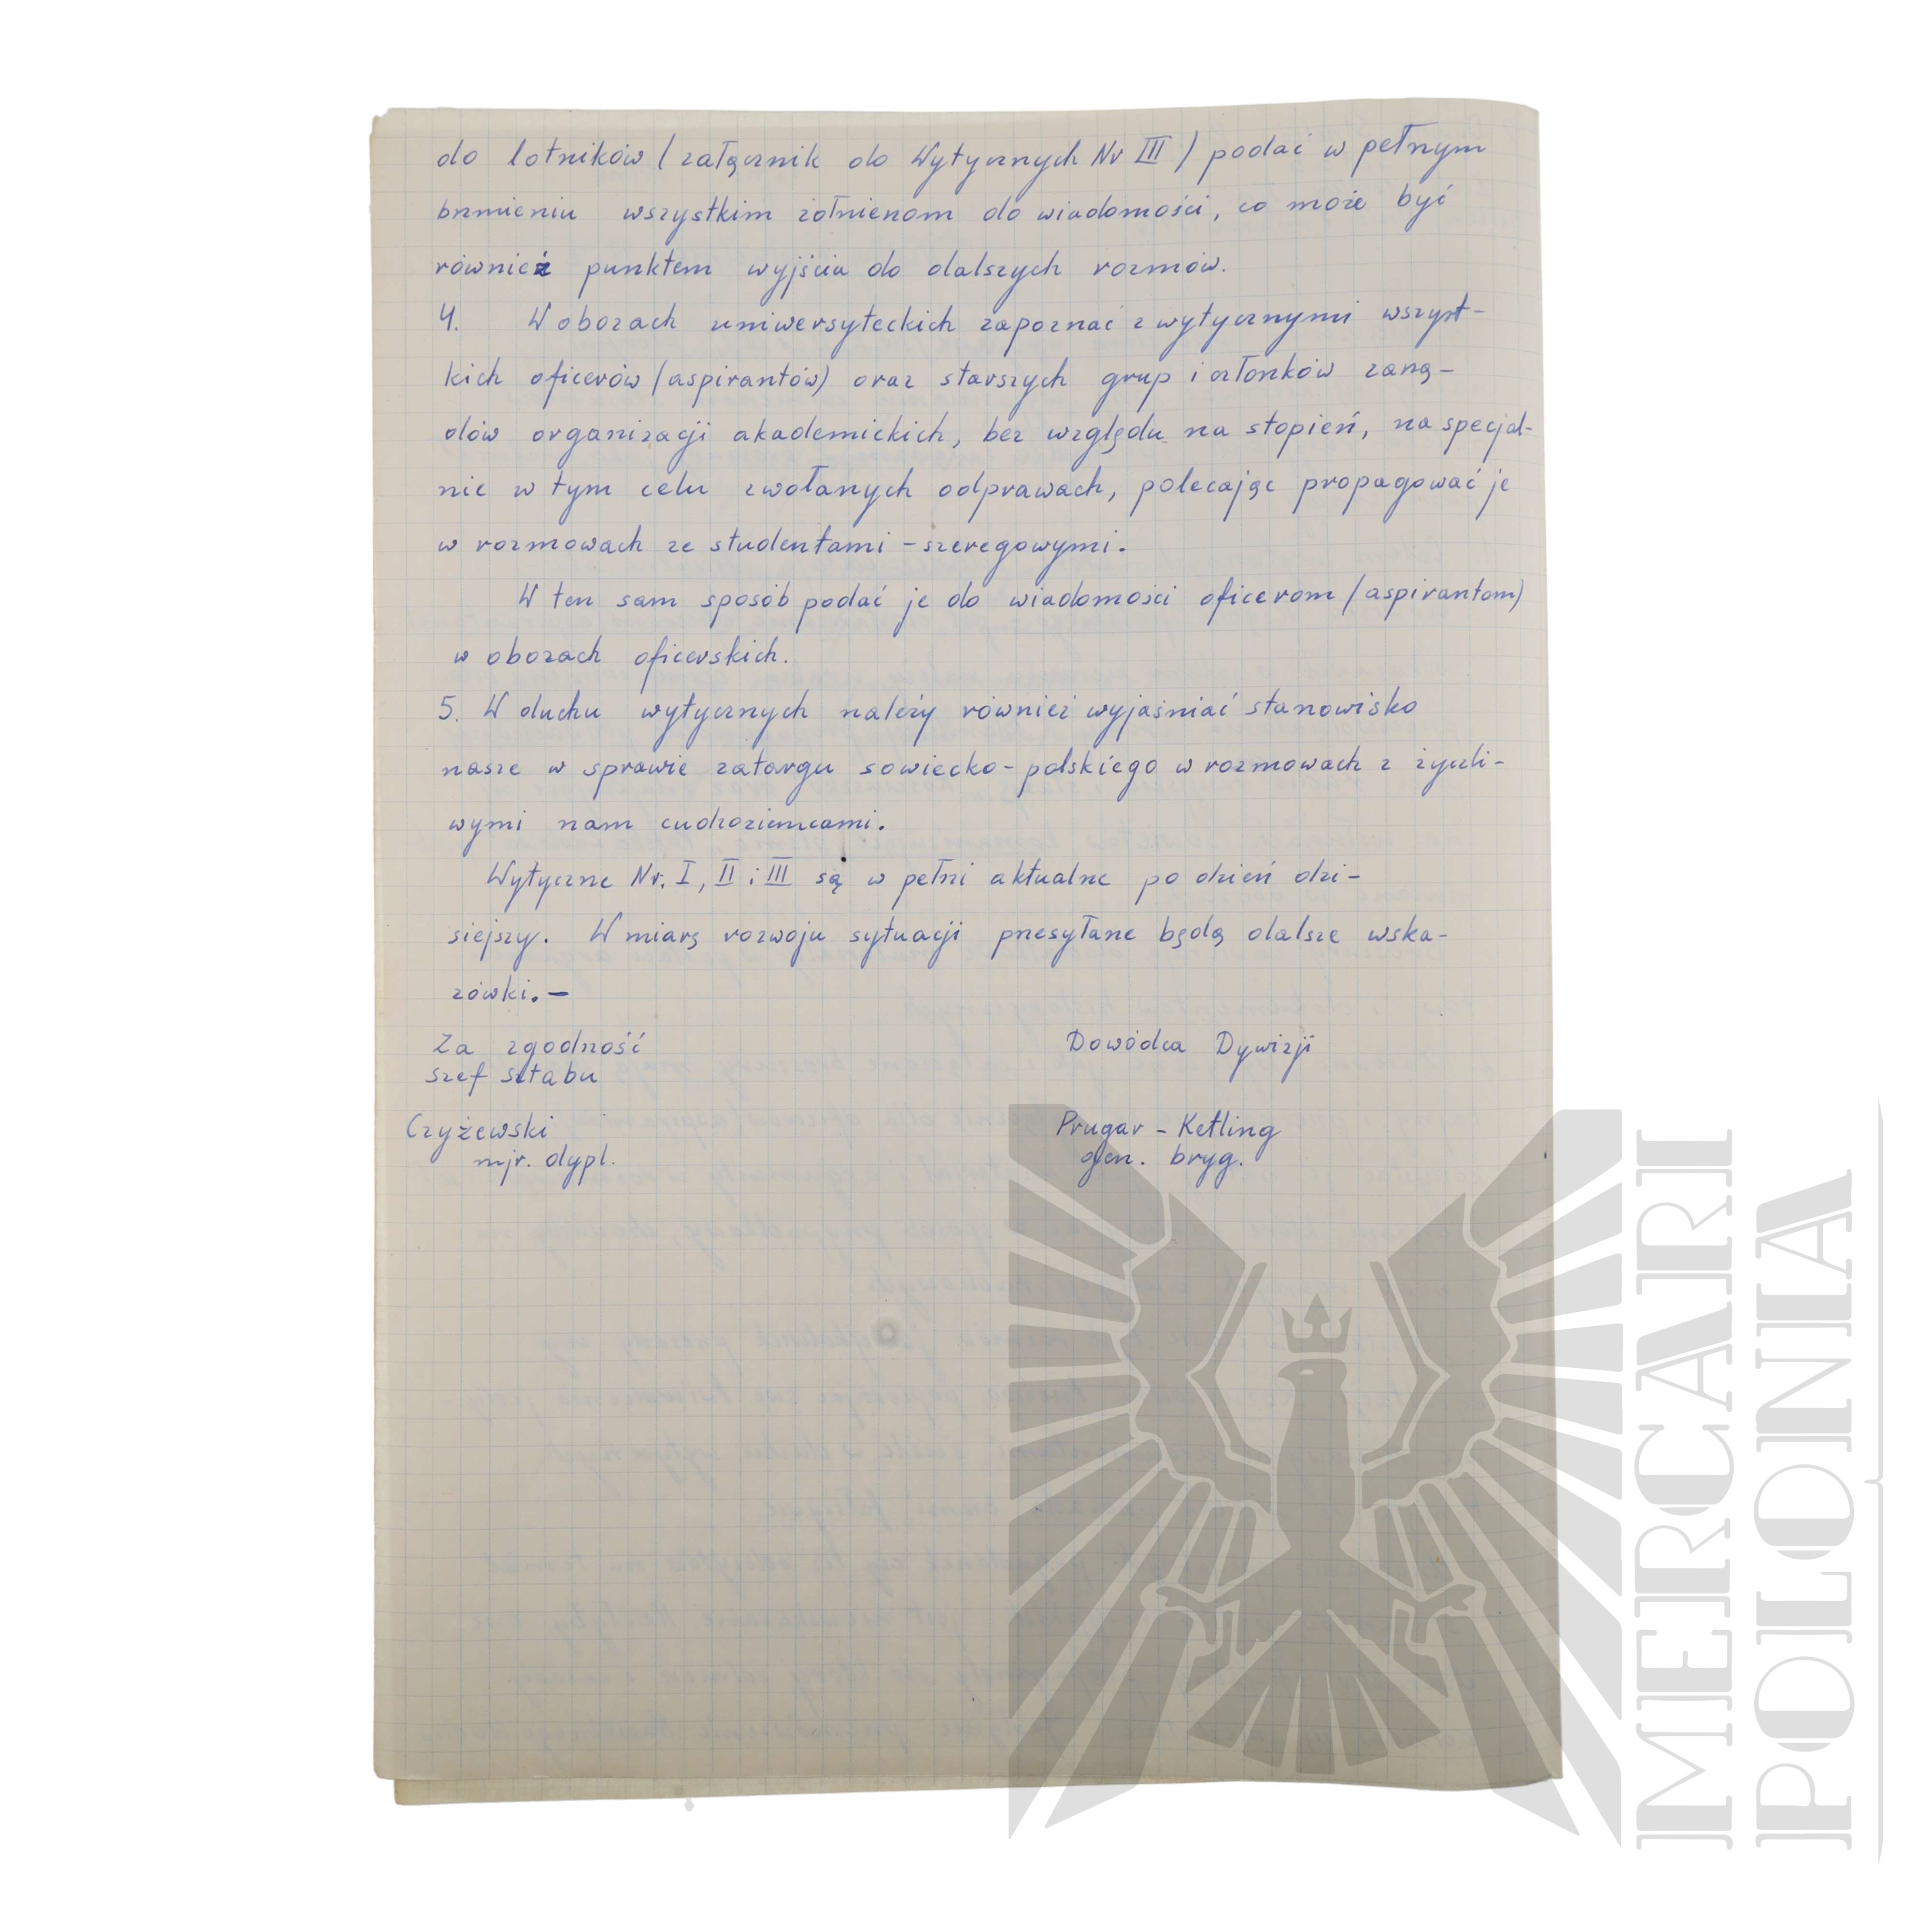 do lotników (załącznik do Wytycznych Nr III) podać w pełnym
brzmieniu wszystkim żołnierzom do wiadomości, co może być
również punktem wyjścia do dalszych rozmów.
4. W obozach uniwersyteckich zapoznać z wytycznymi wszyst-
kich oficerów (aspirantów) oraz starszych grup i członków zarzą-
dów organizacji akademickich, bez względu na stopień, na specjal-
nie w tym celu zwołanych odprawach, polecając propagować je
w rozmowach ze studentami - szeregowymi.
W ten sam sposób podać je do wiadomości oficerom (aspirantom)
w obozach oficerskich.
5. W duchu wytycznych należy również wyjaśniać stanowisko
nasze w sprawie zatargu sowiecko-polskiego w rozmowach z życzli-
wymi nam cudzoziemcami.
Wytyczne Nr. I, II i III są w pełni aktualne po dzień dzi-
siejszy. W miarę rozwoju sytuacji przesyłane będą dalsze wska-
zówki.-
Za zgodność
szef sztabu
Czyżewski
mjr. dypl.
Dowódca Dywizji
Prugar - Ketling
gen. bryg.
MERCARI
POLONIA